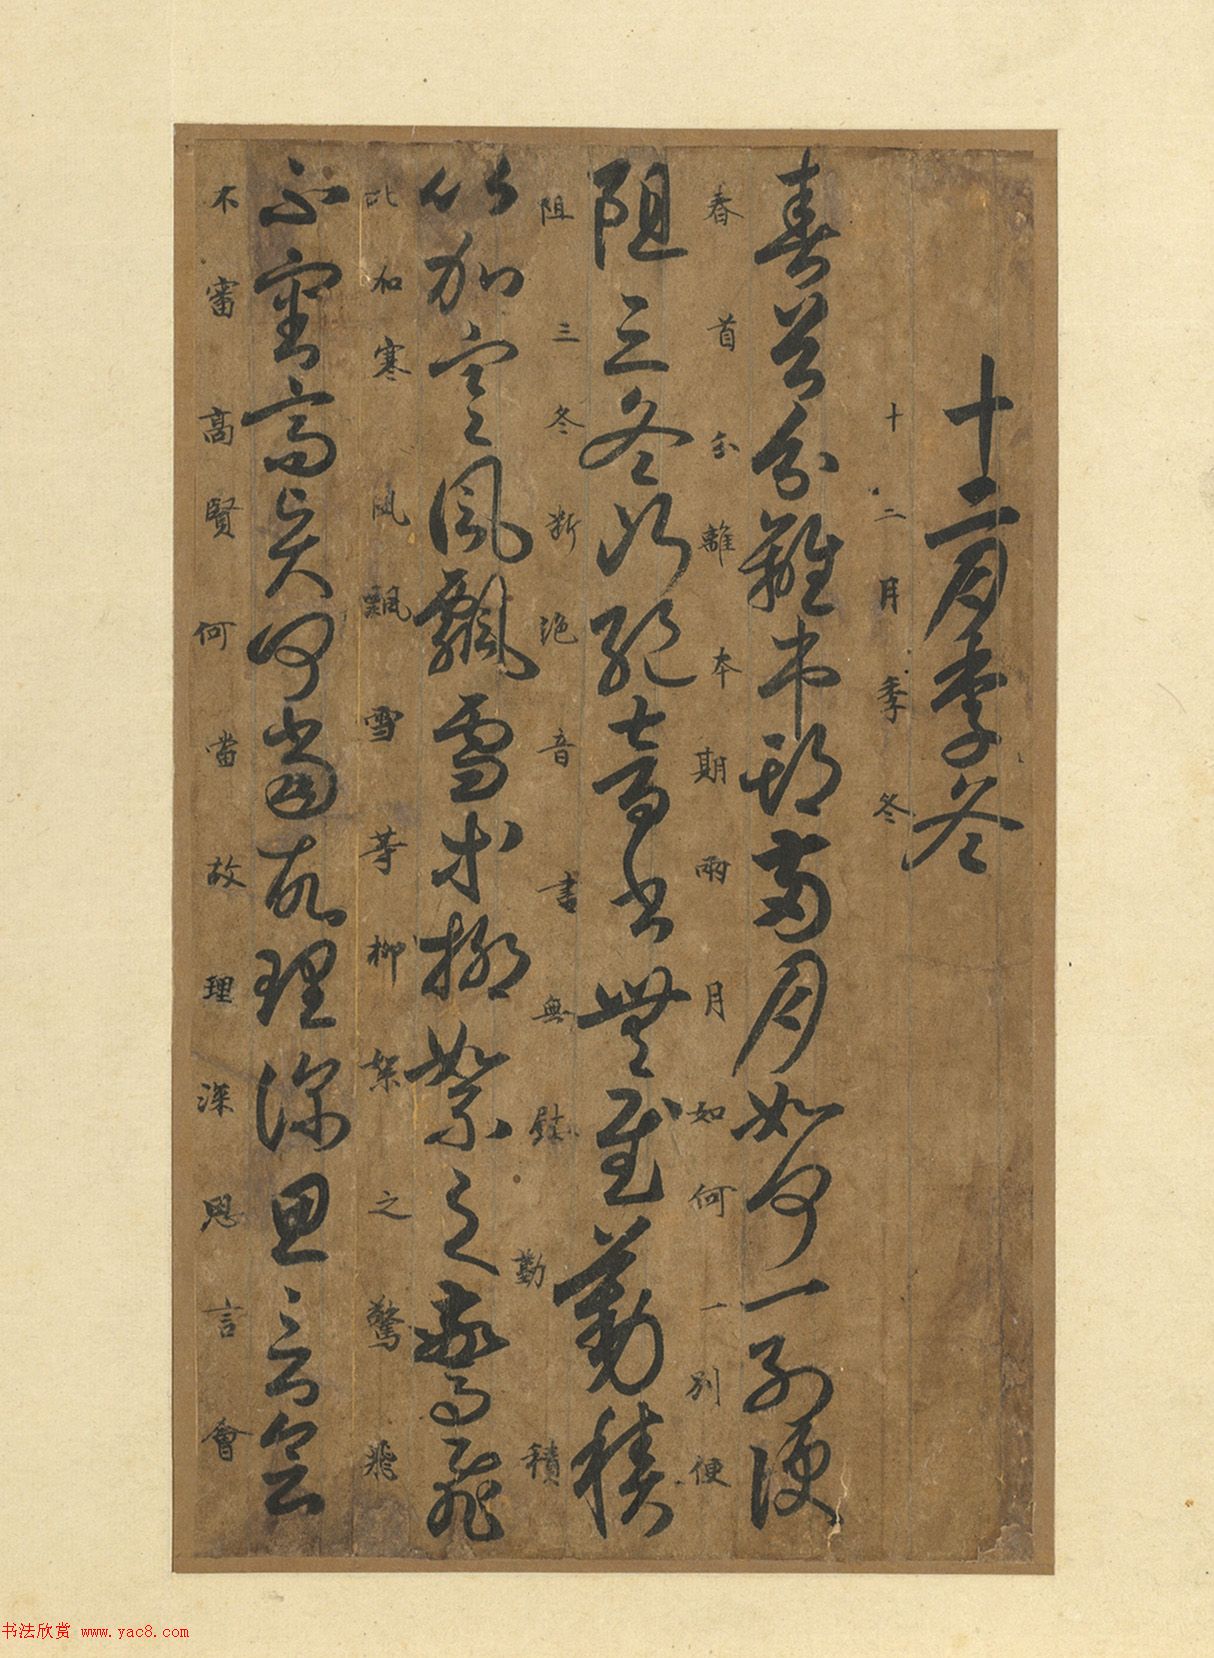 十二月季冬
十二月季冬
春首分離本期兩月如何一別便
春首分離本期兩月如何一別便
阻三冬斷絕音書無慰勤積
阻三冬断絕音書無慰勤積
比加寒風飄雪等柳絮之驚飛
比加寒風飄雪等柳絮之驚飛
不審高賢何當故理深思言會
不審高賢何當故理深思言會
书法欣赏 www.yac8.com